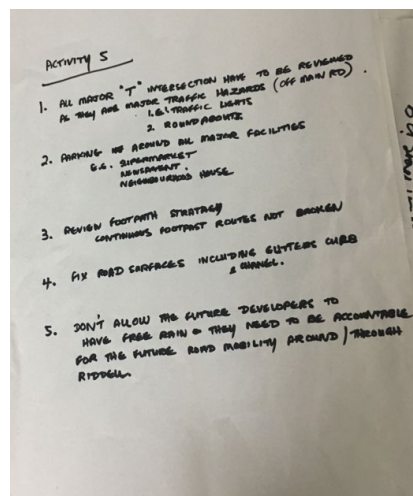 ACTIVITY 5
1. ALL MAJOR "T" INTERSECTION HAVE TO BE REVIEWED
AS THEY ARE MAJOR TRAFFIC HAZARDS (OFF MAIN RD).
1. E.G. TRAFFIC LIGHTS
2. ROUNDABOUTS
2. PARKING AROUND ALL MAJOR FACILITIES
E.G. SUPERMARKET
NEWSAGENT.
NEIGHBOURHOOD HOUSE
3. REVIEW FOOTPATH STRATAGY
CONTINUOUS FOOTPAST ROUTES NOT BROKEN
4. FIX ROAD SURFACES INCLUDING GUTTERS CURB
& CHANEL.
5. DON'T ALLOW THE FUTURE DEVELOPERS TO
HAVE FREE RAIN & THEY NEED TO BE ACCOUNTABLE
FOR THE FUTURE ROAD MOBILITY AROUND / THROUGH
RIDDELL.